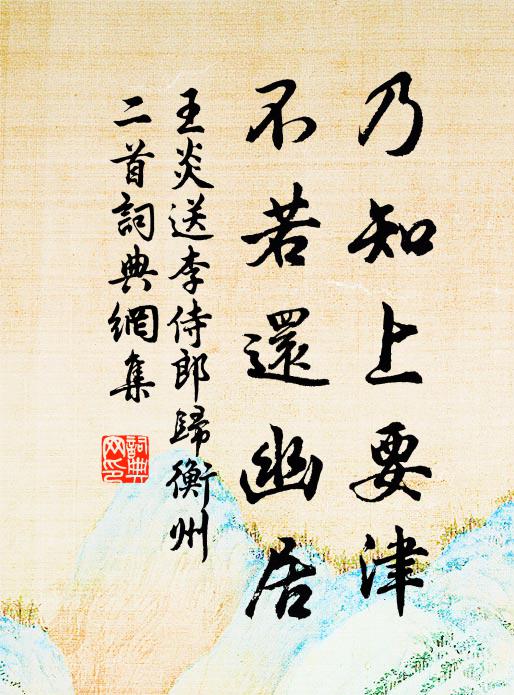 乃知上要津
不若還幽居
王炎送李侍郎歸衡州
二首詞典網集
詞典
网印